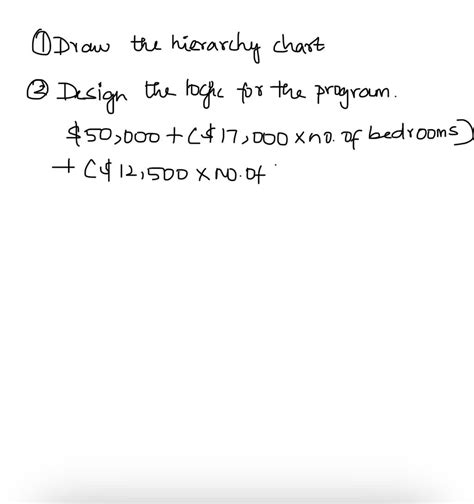 ① Draw the hierarchy chart
② Design the logic for the program.
$50,000 + ($17,000 x no. of bedrooms)
+ ($12,500 x no. of